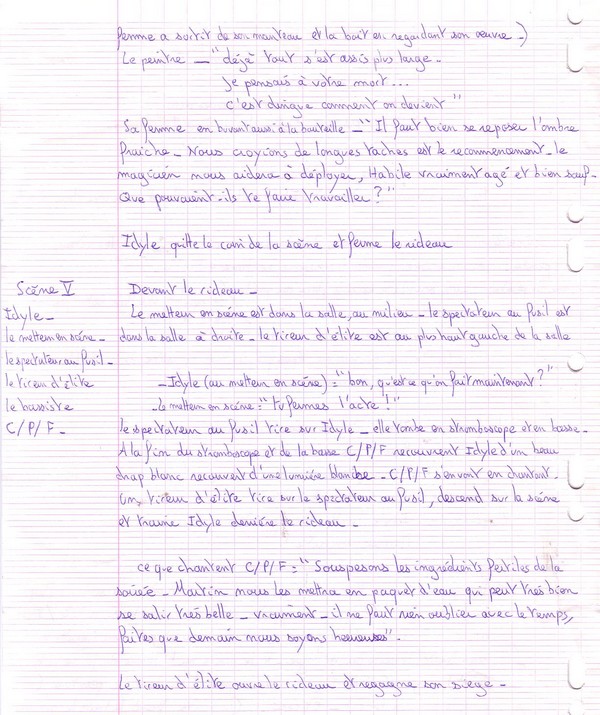 femme a sortit de son manteau et la boit en regardant son œuvre.)
Le peintre — "déjà tout s'est assis plus large..
Je pensais à votre mort...
c'est dingue comment on devient"
Sa femme en buvant aussi à la bouteille — "Il faut bien se reposer l'ombre
fraiche — Nous croyions de longues taches est le recommencement — le
magicien nous aidera à déployer, Habile vraiment agé et bien sauf —
Que pouvaient-ils te faire travailler?"
Idyle quitte le coin de la scène et ferme le rideau
Scène V
Devant le rideau —
Idyle —
Le metteur en scène est dans la salle, au milieu — le spectateur au fusil est
le metteur en scène —
dans la salle à droite — le tireur d'élite est au plus haut gauche de la salle
le spectateur au fusil —
le tireur d'élite
— Idyle (au metteur en scène) = "bon, qu'est ce qu'on fait maintenant?"
le bassiste
— le metteur en scène = "tu fermes l'acte!"
C/P/F —
le spectateur au fusil tire sur Idyle — elle tombe en stromboscope et en basse —
A la fin du stromboscope et de la basse C/P/F recouvrent Idyle d'un beau
drap blanc recouvert d'une lumière blanche — C/P/F s'en vont en chantant.
Un tireur d'élite tire sur le spectateur au fusil, descend sur la scène
et traine Idyle derrière le rideau —
ce que chantent C/P/F = "Souspesons les ingrédients fertiles de la
soirée — Martin nous les mettra en paquet d'eau qui peut très bien
se salir très belle — vraiment — il ne faut rien oublier avec le temps,
faites que demain nous soyons heureuses".
Le tireur d'élite ouvre le rideau et regagne son siege —